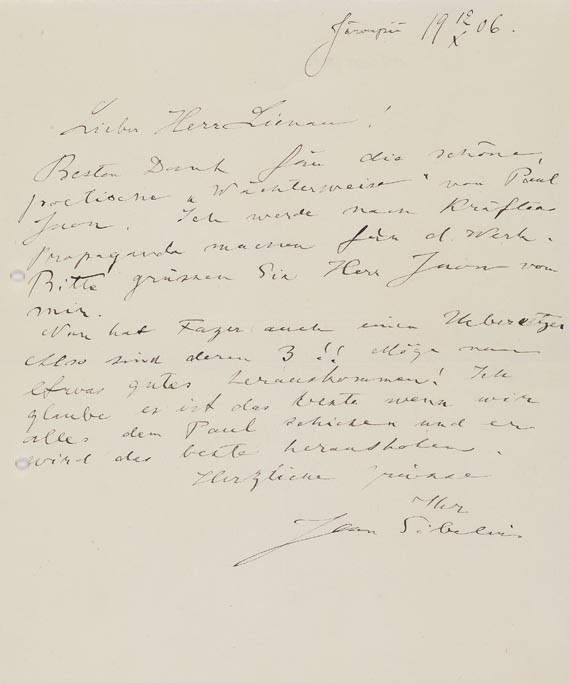 Järvenpää 19 18/X 06.
Lieber Herr Lienau!
Besten Dank für die schöne,
poetische „Wächterweise" von Paul
Juon. Ich werde nach Kräften
Propaganda machen für d. Werk.
Bitte grüssen Sie Herr Juon von
mir.
Nun hat Fazer auch einen Uebersetzer
Also sind deren 3!! Möge nun
etwas gutes herauskommen! Ich
glaube es ist das beste wenn wir
alles dem Paul schicken und er
wird das beste herausholen.
Herzliche Grüsse
Ihr
Jean Sibelius